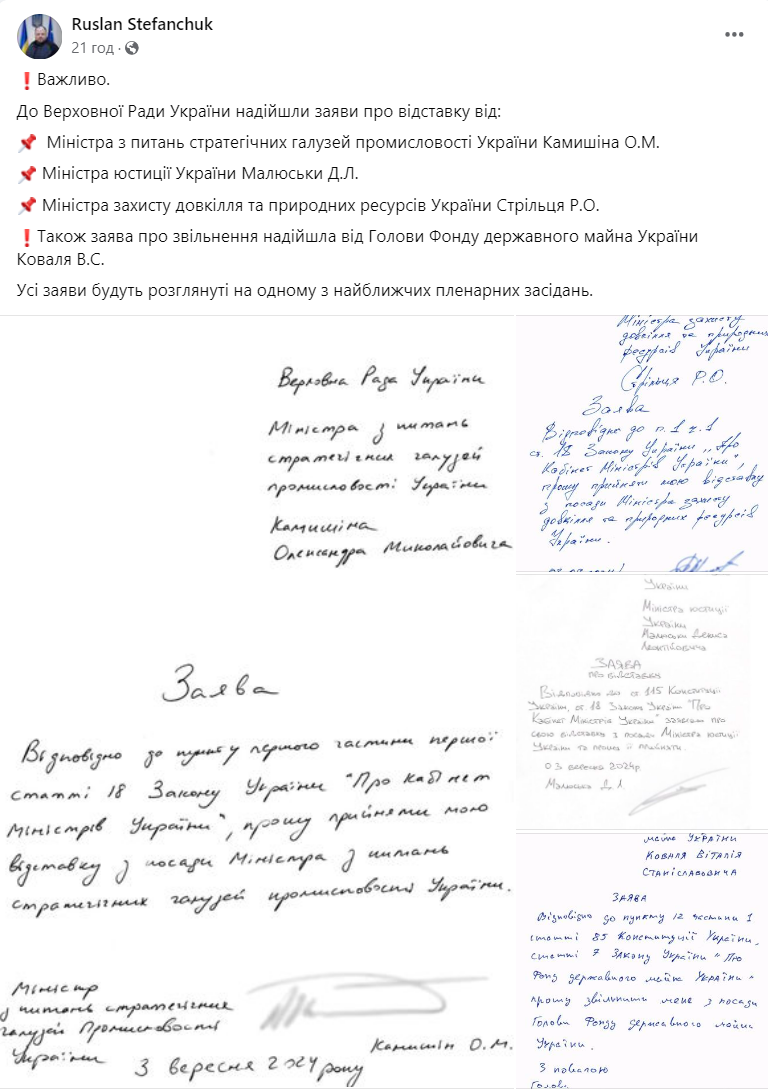 Ruslan Stefanchuk
21 год ·
❗Важливо.
До Верховної Ради України надійшли заяви про відставку від:
📌 Міністра з питань стратегічних галузей промисловості України Камишіна О.М.
📌 Міністра юстиції України Малюськи Д.Л.
📌 Міністра захисту довкілля та природних ресурсів України Стрільця Р.О.
❗Також заява про звільнення надійшла від Голови Фонду державного майна України
Коваля В.С.
Усі заяви будуть розглянуті на одному з найближчих пленарних засідань.
Верховна Рада України
Міністра з питань
стратегічних галузей
промисловості України
Камишіна
Олександра Миколайовича
Заява
Відповідно до пункту першого частини першої
статті 18 Закону України "Про Кабінет
Міністрів України", прошу прийняти мою
відставку з посади Міністра з питань
стратегічних галузей промисловості України.
Міністр
з питань стратегічних
галузей Промисловості
України
Камишін О.М.
3 вересня 2024 року
Міністра захисту
довкілля та природних
ресурсів України
Стрільця Р.О.
Заява
Відповідно до п.1 ч.1
ст. 18 Закону України „Про
Кабінет Міністрів України",
прошу прийняти мою відставку
з посади Міністра захисту
довкілля та природних ресурсів
України.
України
Міністра юстиції
України
Малюськи Дениса
Леонтійовича
ЗАЯВА
про відставку
Відповідно до ст. 115 Конституції
України, ст. 18 Закону України "Про
Кабінет Міністрів України" заявляю про
свою відставку з посади Міністра юстиції
України та прошу її прийняти.
03 вересня 2024р.
Малюська Д.Л.
майна України
Коваля Віталія
Станіславовича
ЗАЯВА
Відповідно до пункту 12 частини 1
статті 85 Конституції України,
статті 7 Закону України "Про
Фонд державного майна України"
прошу звільнити мене з посади
Голови Фонду державного майна
України.
З повагою
Голова